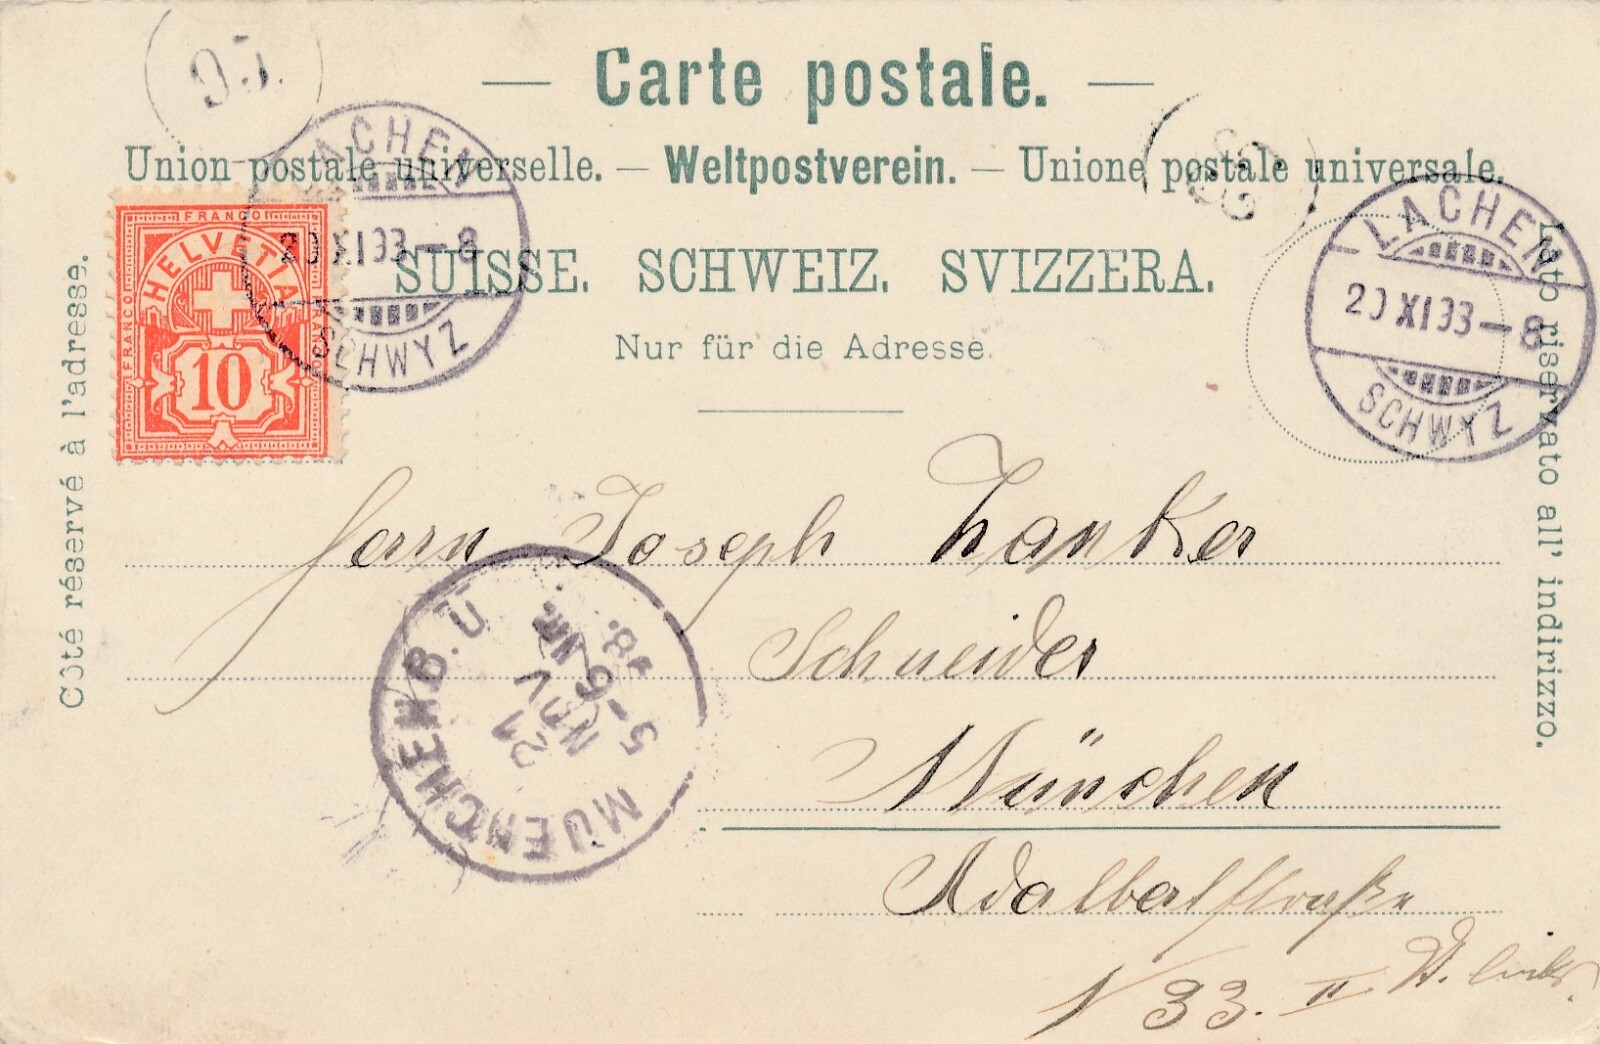 95.
— Carte postale. —
Union postale universelle. — Weltpostverein. — Unione postale universale.
SUISSE. SCHWEIZ. SVIZZERA.
Nur für die Adresse
Côté réservé à l'adresse.
Lato riservato all' indirizzo.
FRANCO
HELVETIA
FRANCO
FRANCO
10
LACHEN
20 XI 93 – 8
SCHWYZ
LACHEN
20 XI 93 – 8
SCHWYZ
Herrn Joseph Zanker
Schneider
München
Adalbertstraße
33. II links.
MUENCHEN B. Ü
21
NOV
5–6 NM.
98.